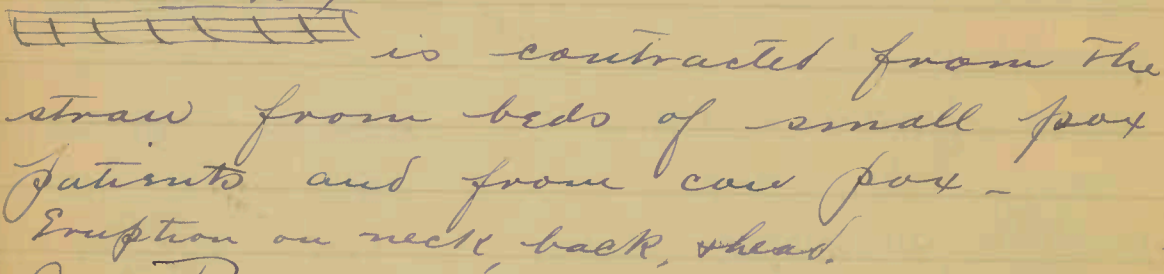 is contracted from the
straw from beds of small pox
patients and from cow pox -
Eruption on neck, back, & head.